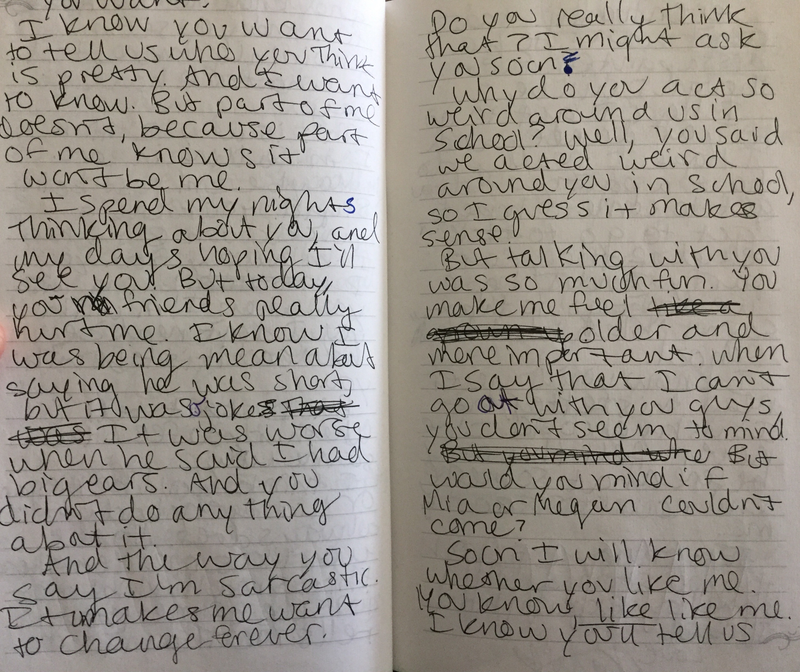 you want?
I know you want
to tell us who you think
is pretty. And I want
to know. But part of me
doesn't, because part
of me knows it
won't be me.
I spend my nights
thinking about you, and
my days hoping I'll
see you! But today,
your friends really
hurt me. I know I
was being mean about
saying he was short,
but it was a joke
It was worse
when he said I had
big ears. And you
didn't do any thing
about it.
And the way you
say I'm sarcastic.
It makes me want
to change forever.
Do you really think
that? I might ask
you soon?
Why do you act so
weird around us in
school? Well, you said
we acted weird
around you in school,
so I guess it makes
sense.
But talking with you
was so much fun. You
make me fuel like a
grown older and
more important. When
I say that I can't
go out with you guys,
you don't seem to mind.
But you mind whe But
would you mind if
Mia or Megan couldn't
come?
Soon I will know
whether you like me.
You know, like like me.
I know you'll tell us